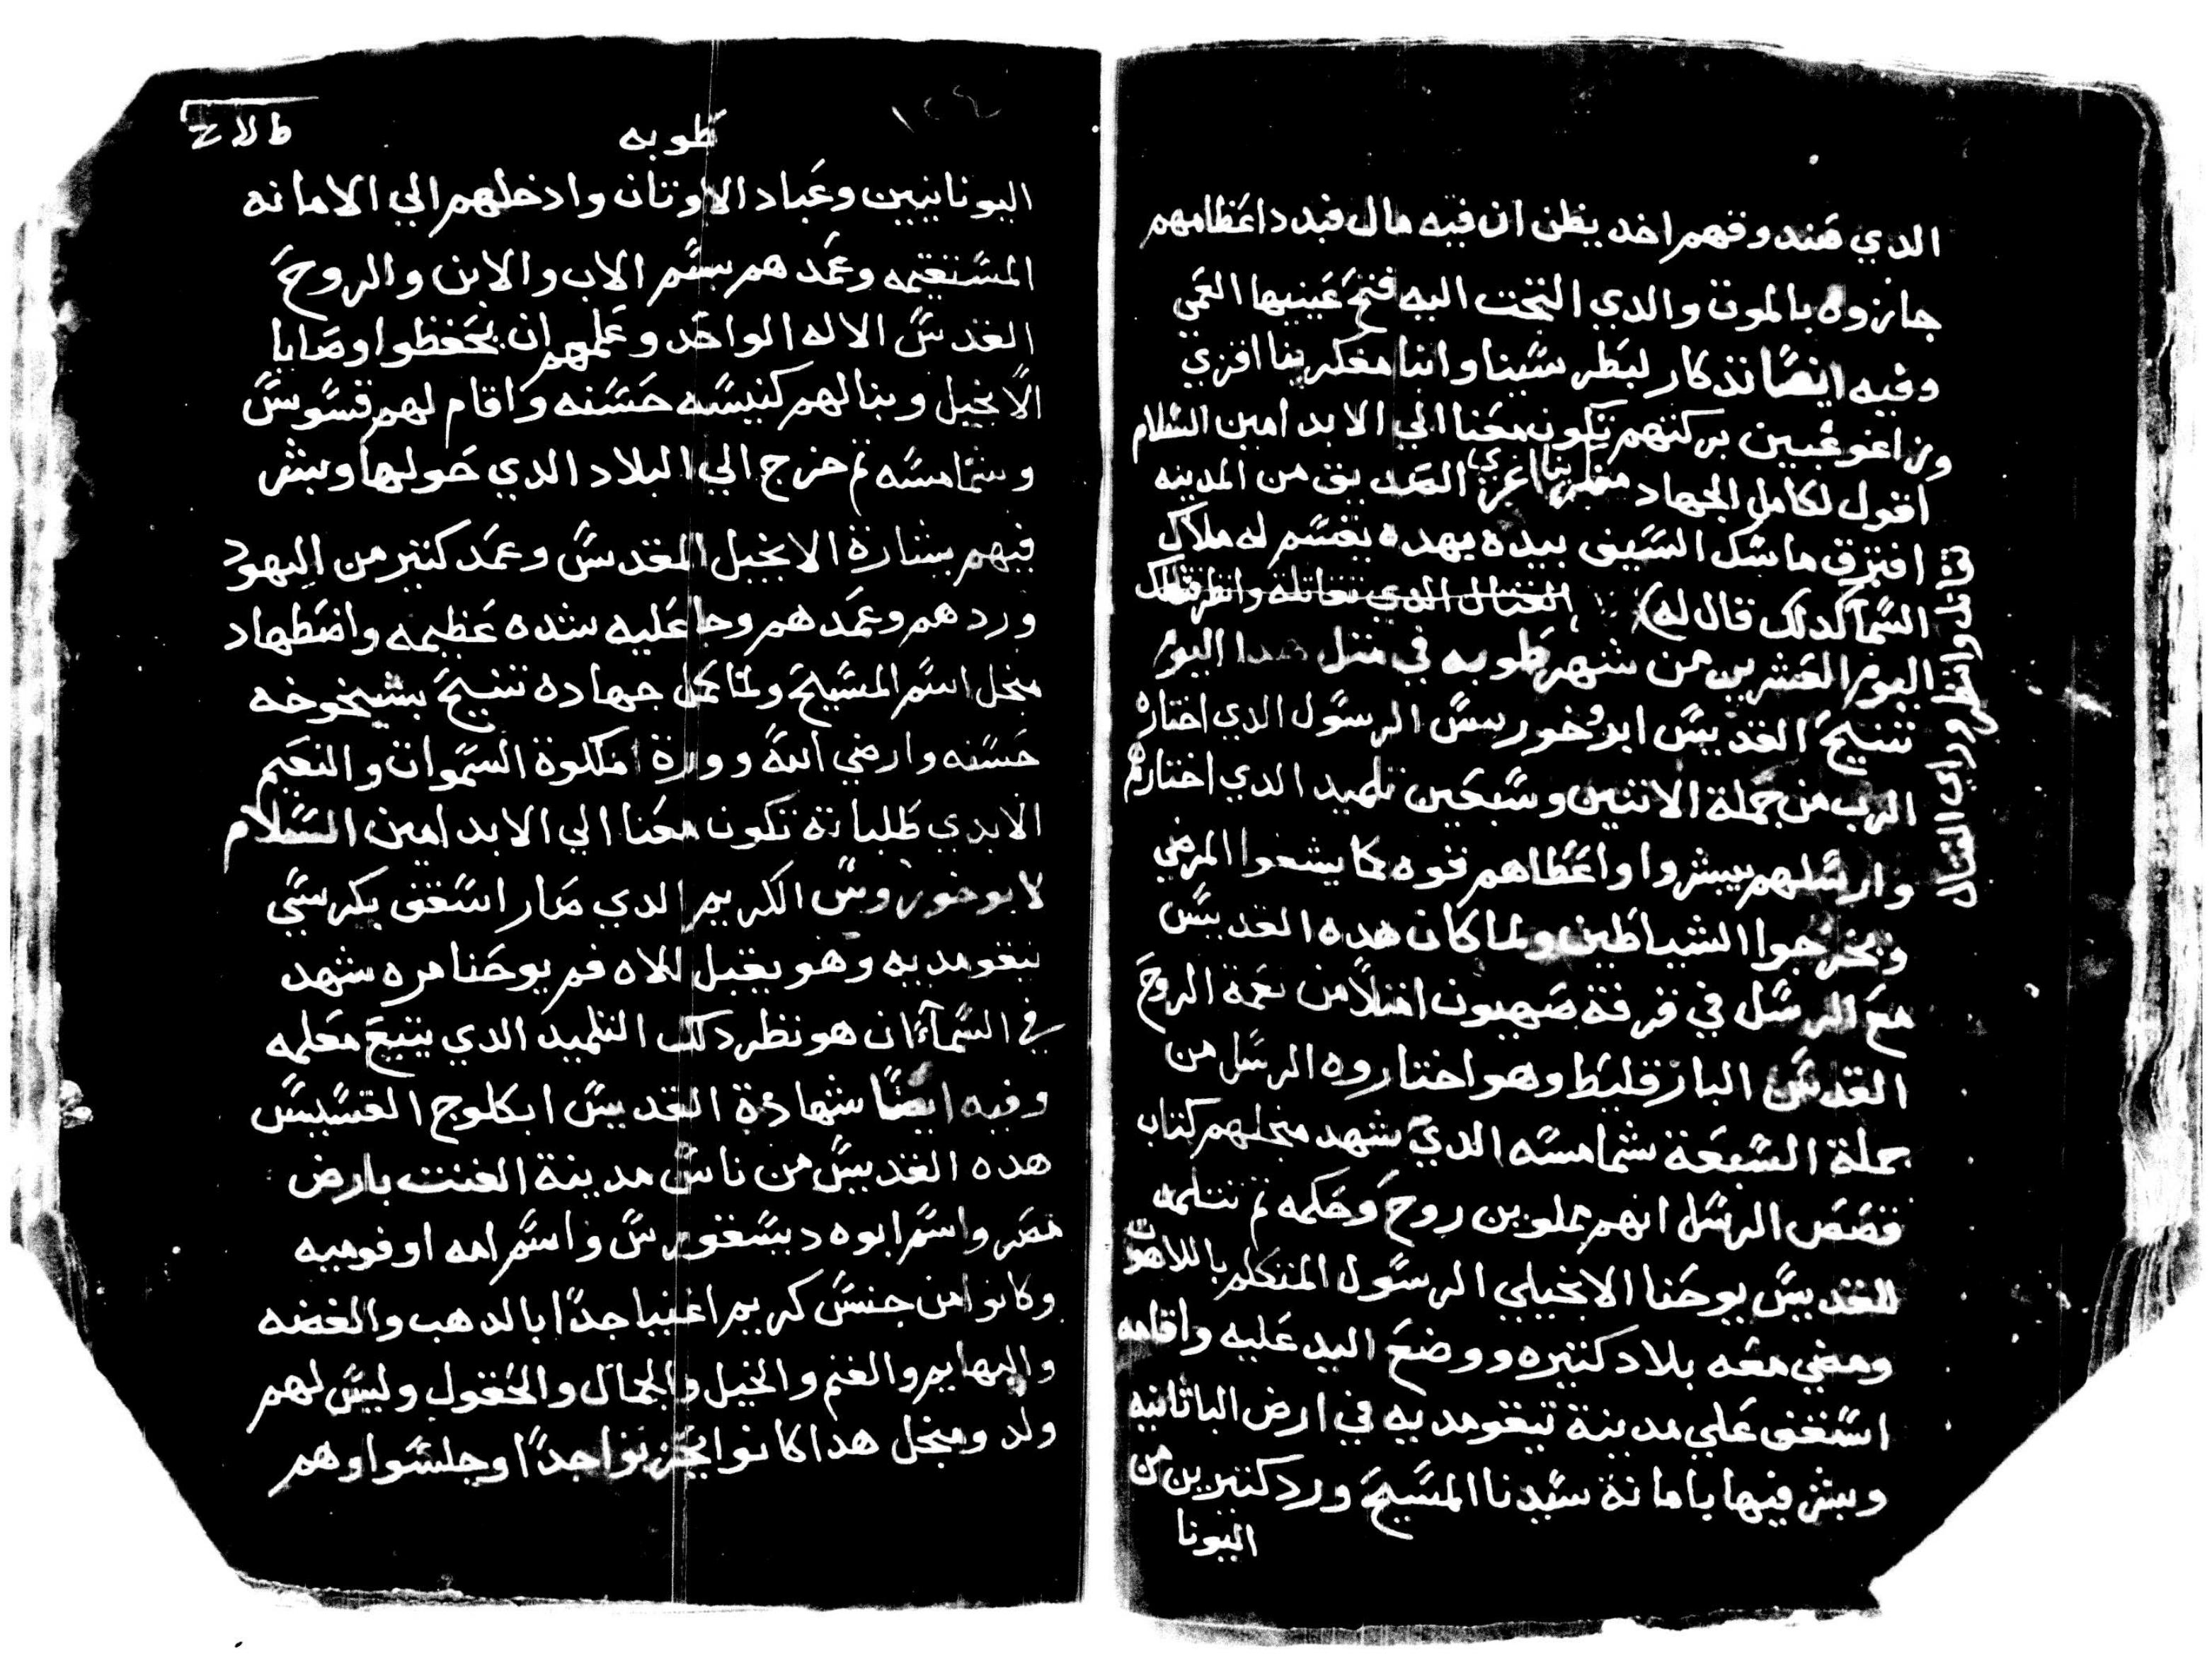 الدي صندوقهم اخد يظن ان فيه مال فبدد اعظامهم
جازوه بالموت والدي التجت اليه فتح عينيها العمي
وفيه ايضا تذكار لبطر سينا واننا مفكرينا افزي
بركتهم تكون معنا الي الابد امين السلام
اقول لكامل الجهاد اغزي الصديق من المدينه
افترق ماسك السيف بيده يهده بقسم له ملاك
السما كدلك قال له القتال الدي تقاتله وانظر
قاتل وانظر وراي القتال
اليوم العشرين من شهر طوبه في متل هدا اليوم
تنيح القديس ابروخورس الرسول الدي اختاره
الرب من جملة الاتنين وسبعين تلميد الدي اختارهم
وارسلهم يبشروا واعطاهم قوه كما يشفوا المرضي
ويخرجوا الشياطين ولما كان هده القديس
مع الرسل في غرفة صهيون امتلا من نعمة الروح
القدس البارقليط وهو اختاروه الرسل من
جملة السبعة شمامسه الدي شهد منجلهم كتاب
قصص الرسل انهم مملوين روح وحكمه تم تتلمد
للقديس يوحنا الانجيلي الرسول المتكلم باللاهوت
ومضي معه بلاد كتيره ووضع اليد عليه واقامه
اسقف علي مدينة نيقومديه في ارض الباتانيه
وبشر فيها بامانة سيدنا المسيح ورد كتيرين من
اليونا
طوبه
اليونانيين وعباد الاوتان وادخلهم الي الامانه
المستقيمه وعمدهم بسم الاب والابن والروح
القدس الاله الواحد وعلمهم ان يحفظوا وصايا
الانجيل وبنا لهم كنيسه حسنه واقام لهم قسوس
وشمامسه تم خرج الي البلاد الدي حولها وبشر
فيهم بشارة الانجيل المقدس وعمد كتير من اليهود
وردهم وعمدهم وجا عليه شده عظيمه واضطهاد
منجل اسم المسيح ولما كمل جهاده تنيح بشيخوخه
حسنه وارضي الله وورت ملكوة السموات والنعيم
الابدي طلباته تكون معنا الي الابد امين السلام
لابروخوروس الكريم الدي صار اسقف بكرسي
نيقومديه وهو يقبل للاه فم يوحنا مره شهد
في السمآ ان هو نظر دلك التلميد الدي يتبع معلمه
وفيه ايضا شهادة القديس ابكلوج القسيس
هده القديس من ناس مدينة الفنت بارض
مصر واسم ابوه ديسقورس واسم امه اوفوميه
وكانوا من جنس كريم اغنيا جدا بالدهب والفضه
والبهايم والغنم والخيل والجمال والحقول وليس لهم
ولد ومنجل هدا كانوا يحزنوا جدا وجلسوا وهم